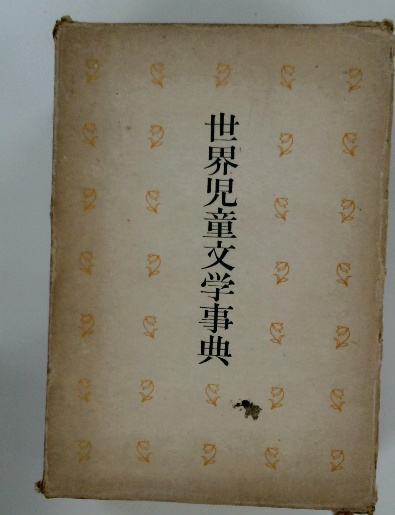 世界児童文学事典